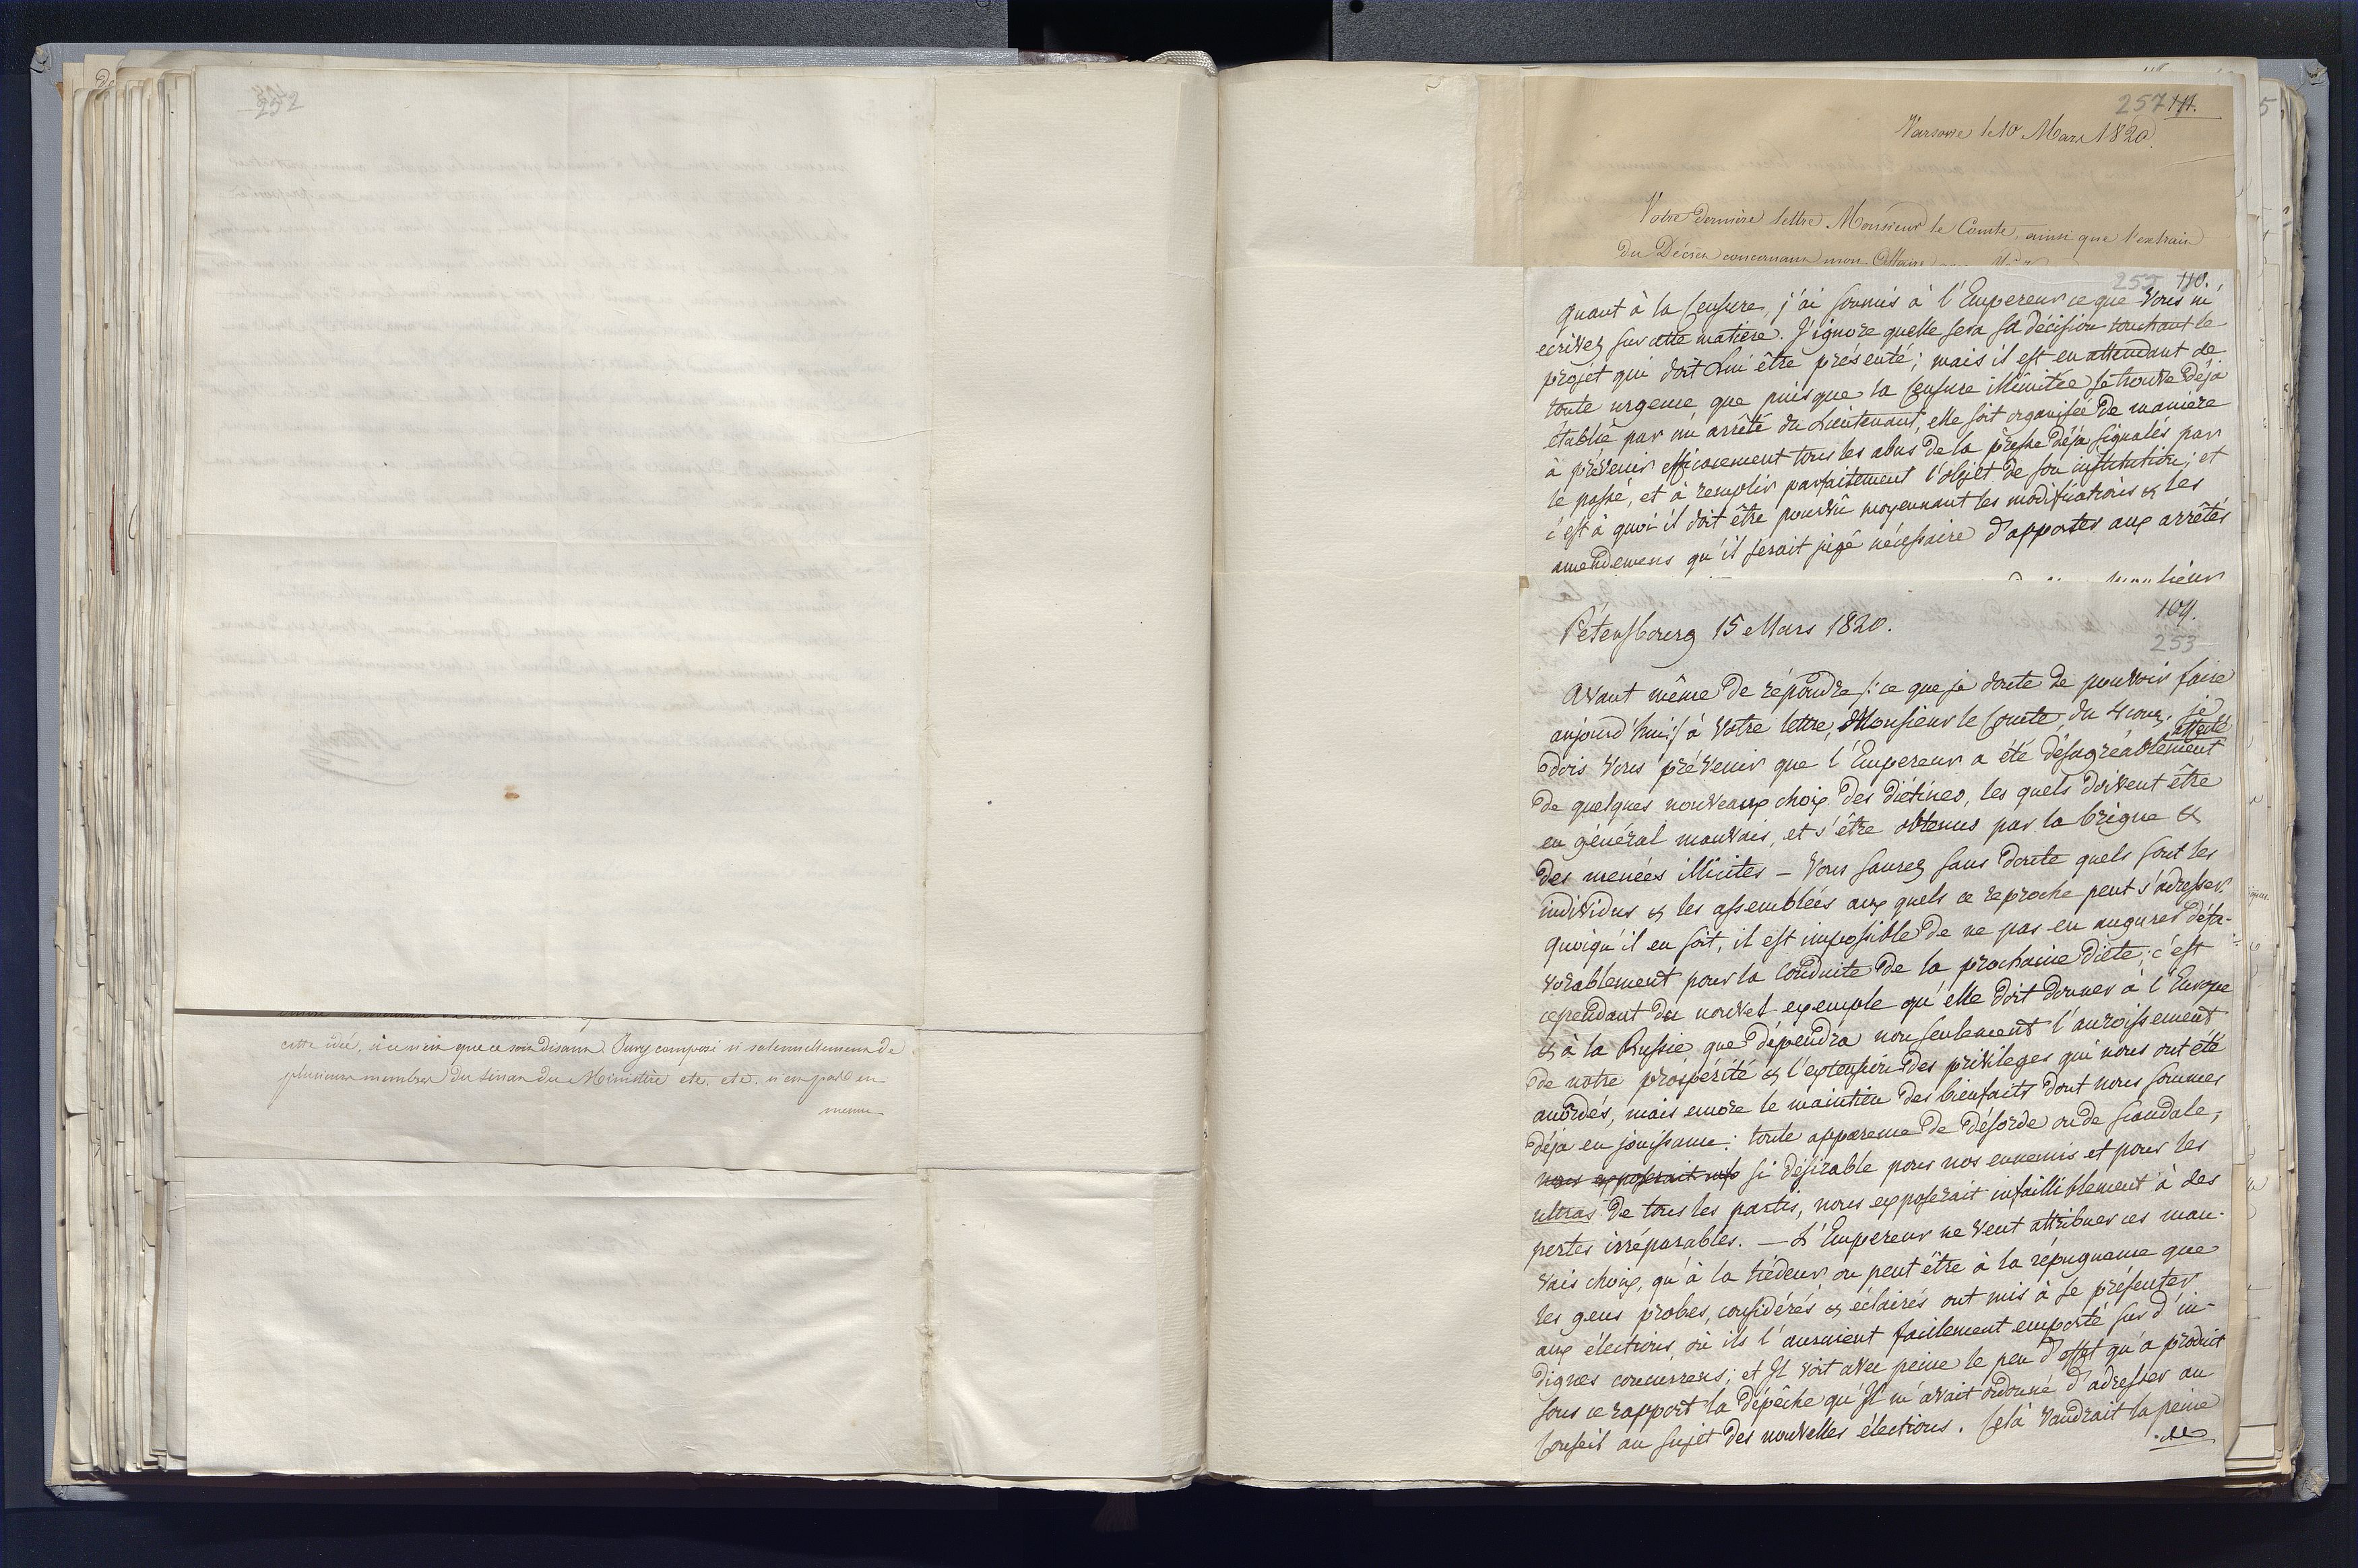 252
cette idée, si ce n'est que ce soit disant Jury composé si solennellement de
plusieurs membres du Sénat du Ministère etc. etc. n'en pas eu
même
257 111.
Varsovie le 10 Mars 1820.
Votre dernière lettre Monsieur le Comte, ainsi que l'extrait
du Décret concernant mon Affaire
255 110.
Quant à la Censure, j'ai soumis à l'Empereur ce que Vous m'
écrivez sur cette matière. J'ignore quelle sera Sa décision touchant le
projet qui doit Lui être présenté; mais il est en attendant de
toute urgence que puisque la Censure illimitée se trouve déjà
établie par un arrêté du Lieutenant, elle soit organisée de manière
à prévenir efficacement tous les abus de la presse déjà signalés par
le passé, et à remplir parfaitement l'objet de son institution; et
c'est à quoi il doit être pourvû moyennant les modifications & les
amendemens qu'il serait jugé nécessaire d'apporter aux arrêtés
109.
Pétersbourg 15 Mars 1820.
253
Avant même de répondre /: ce que je doute de pouvoir faire
aujourd'hui :/ à Votre lettre, Monsieur le Comte, du 4 cour. je
dois Vous prévenir que l'Empereur a été désagréablement affecté
de quelques nouveaux choix des diétines, les quels doivent être
en général mauvais, et s'être obtenus par la brigue &
des menées illicites – Vous saurez sans doute quels sont les
individus & les assemblées aux quels ce reproche peut s'adresser.
Quoiqu'il en soit, il est impossible de ne pas en augurer défa-
vorablement pour la conduite de la prochaine diète; c'est
cependant du nouvel exemple qu'elle doit donner à l'Europe
& à la Russie que dépendra non seulement l'accroissement
de notre prospérité & l'extension des privilèges qui nous ont été
accordés, mais encore le maintien des bienfaits dont nous sommes
déjà en jouissance: toute apparence de désorde ou de scandale,
nous exposerait inf si désirable pour nos ennemis et pour les
ultras de tous les partis, nous exposerait infailliblement à des
pertes irréparables. – L'Empereur ne veut attribuer ces mau-
vais choix, qu'à la tiédeur ou peut être à la répugnance que
les gens probes, considérés & éclairés ont mis à se présenter
aux élections, où ils l'auraient facilement emporté sur d'in-
dignes concurrens; et Il voit avec peine le peu d'effet qu'a produit
sous ce rapport la dépêche qu'Il m'avait ordonné d'adresser au
Conseil au sujet des nouvelles élections. Celà vaudrait la peine
de